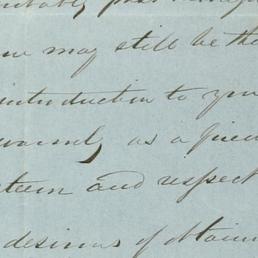 may still be the
introduction to you
warmly as a frien
teem and respect
desirous of obtain